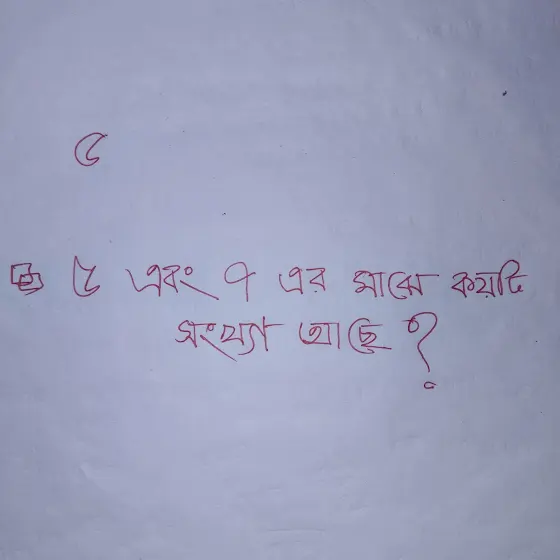 ৫
৫ এবং ৭ এর মাঝে কয়টি
সংখ্যা আছে?